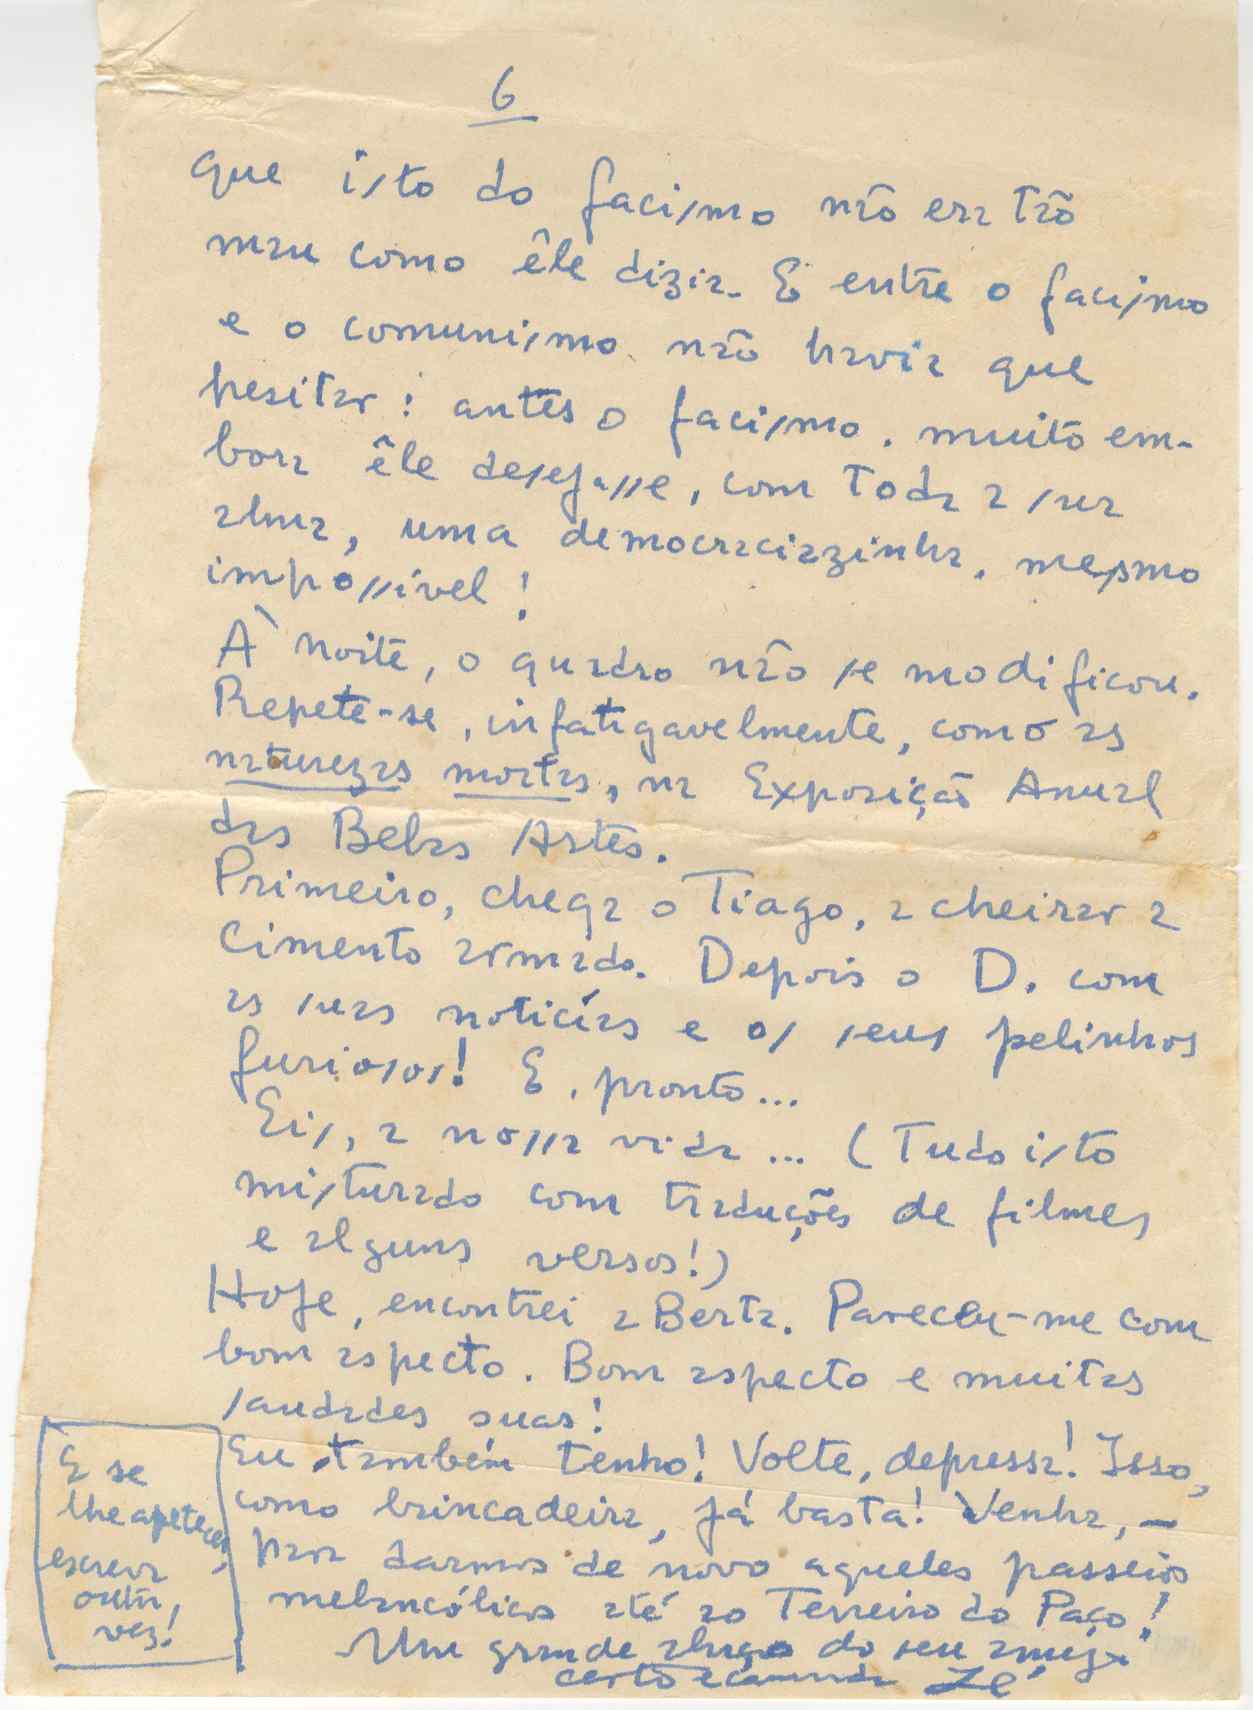 6
que isto do facismo não era tão
mau como êle dizia. E entre o facismo
e o comunismo não havia que
hesitar: antes o facismo. muito em-
bora êle desejasse, com toda a sua
alma, uma democraciazinha, mesmo
impossivel!
À noite, o quadro não se modificou.
Repete-se, infatigavelmente, como as
naturezas mortas, na Exposição Anual
das Belas Artes.
Primeiro, chega o Tiago, a cheirar a
cimento armado. Depois o D. com
as suas noticías e os seus pelinhos
furiosos! E, pronto...
Eis, a nossa vida... (Tudo isto
misturado com traduções de filmes
e alguns versos!)
Hoje, encontrei a Berta. Pareceu-me com
bom aspecto. Bom aspecto e muitas
saudades suas!
Eu também tenho! Volte, depressa! Isso,
como brincadeira, já basta! Venha, —
para darmos de novo aqueles passeios
melancólicos até ao Terreiro do Paço!
Um grande abraço do seu amigo
certo e camarada Zé
E se
lhe apetecer,
escreva
outra
vez!